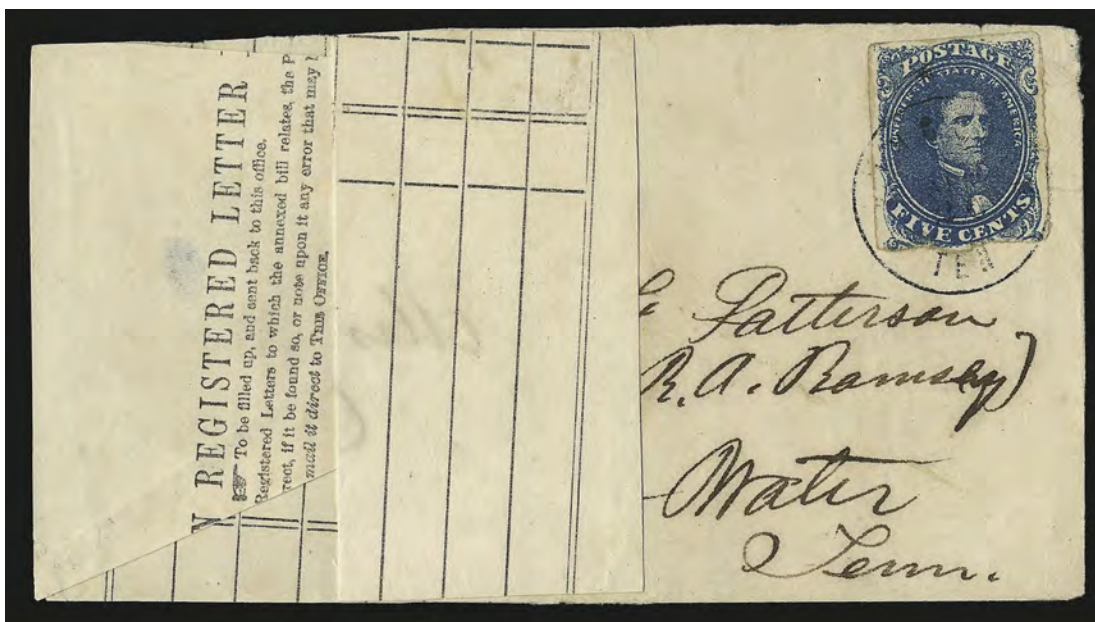 N REGISTERED LETTER
☞ To be filled up, and sent back to this office.
Registered Letters to which the annexed bill relates, the P
rect, if it be found so, or note upon it any error that may
mail it direct to THIS OFFICE.
POSTAGE
CONFEDERATE STATES OF AMERICA
FIVE CENTS
TEN
Patterson
R. A. Ramsey)
Water
Tenn.